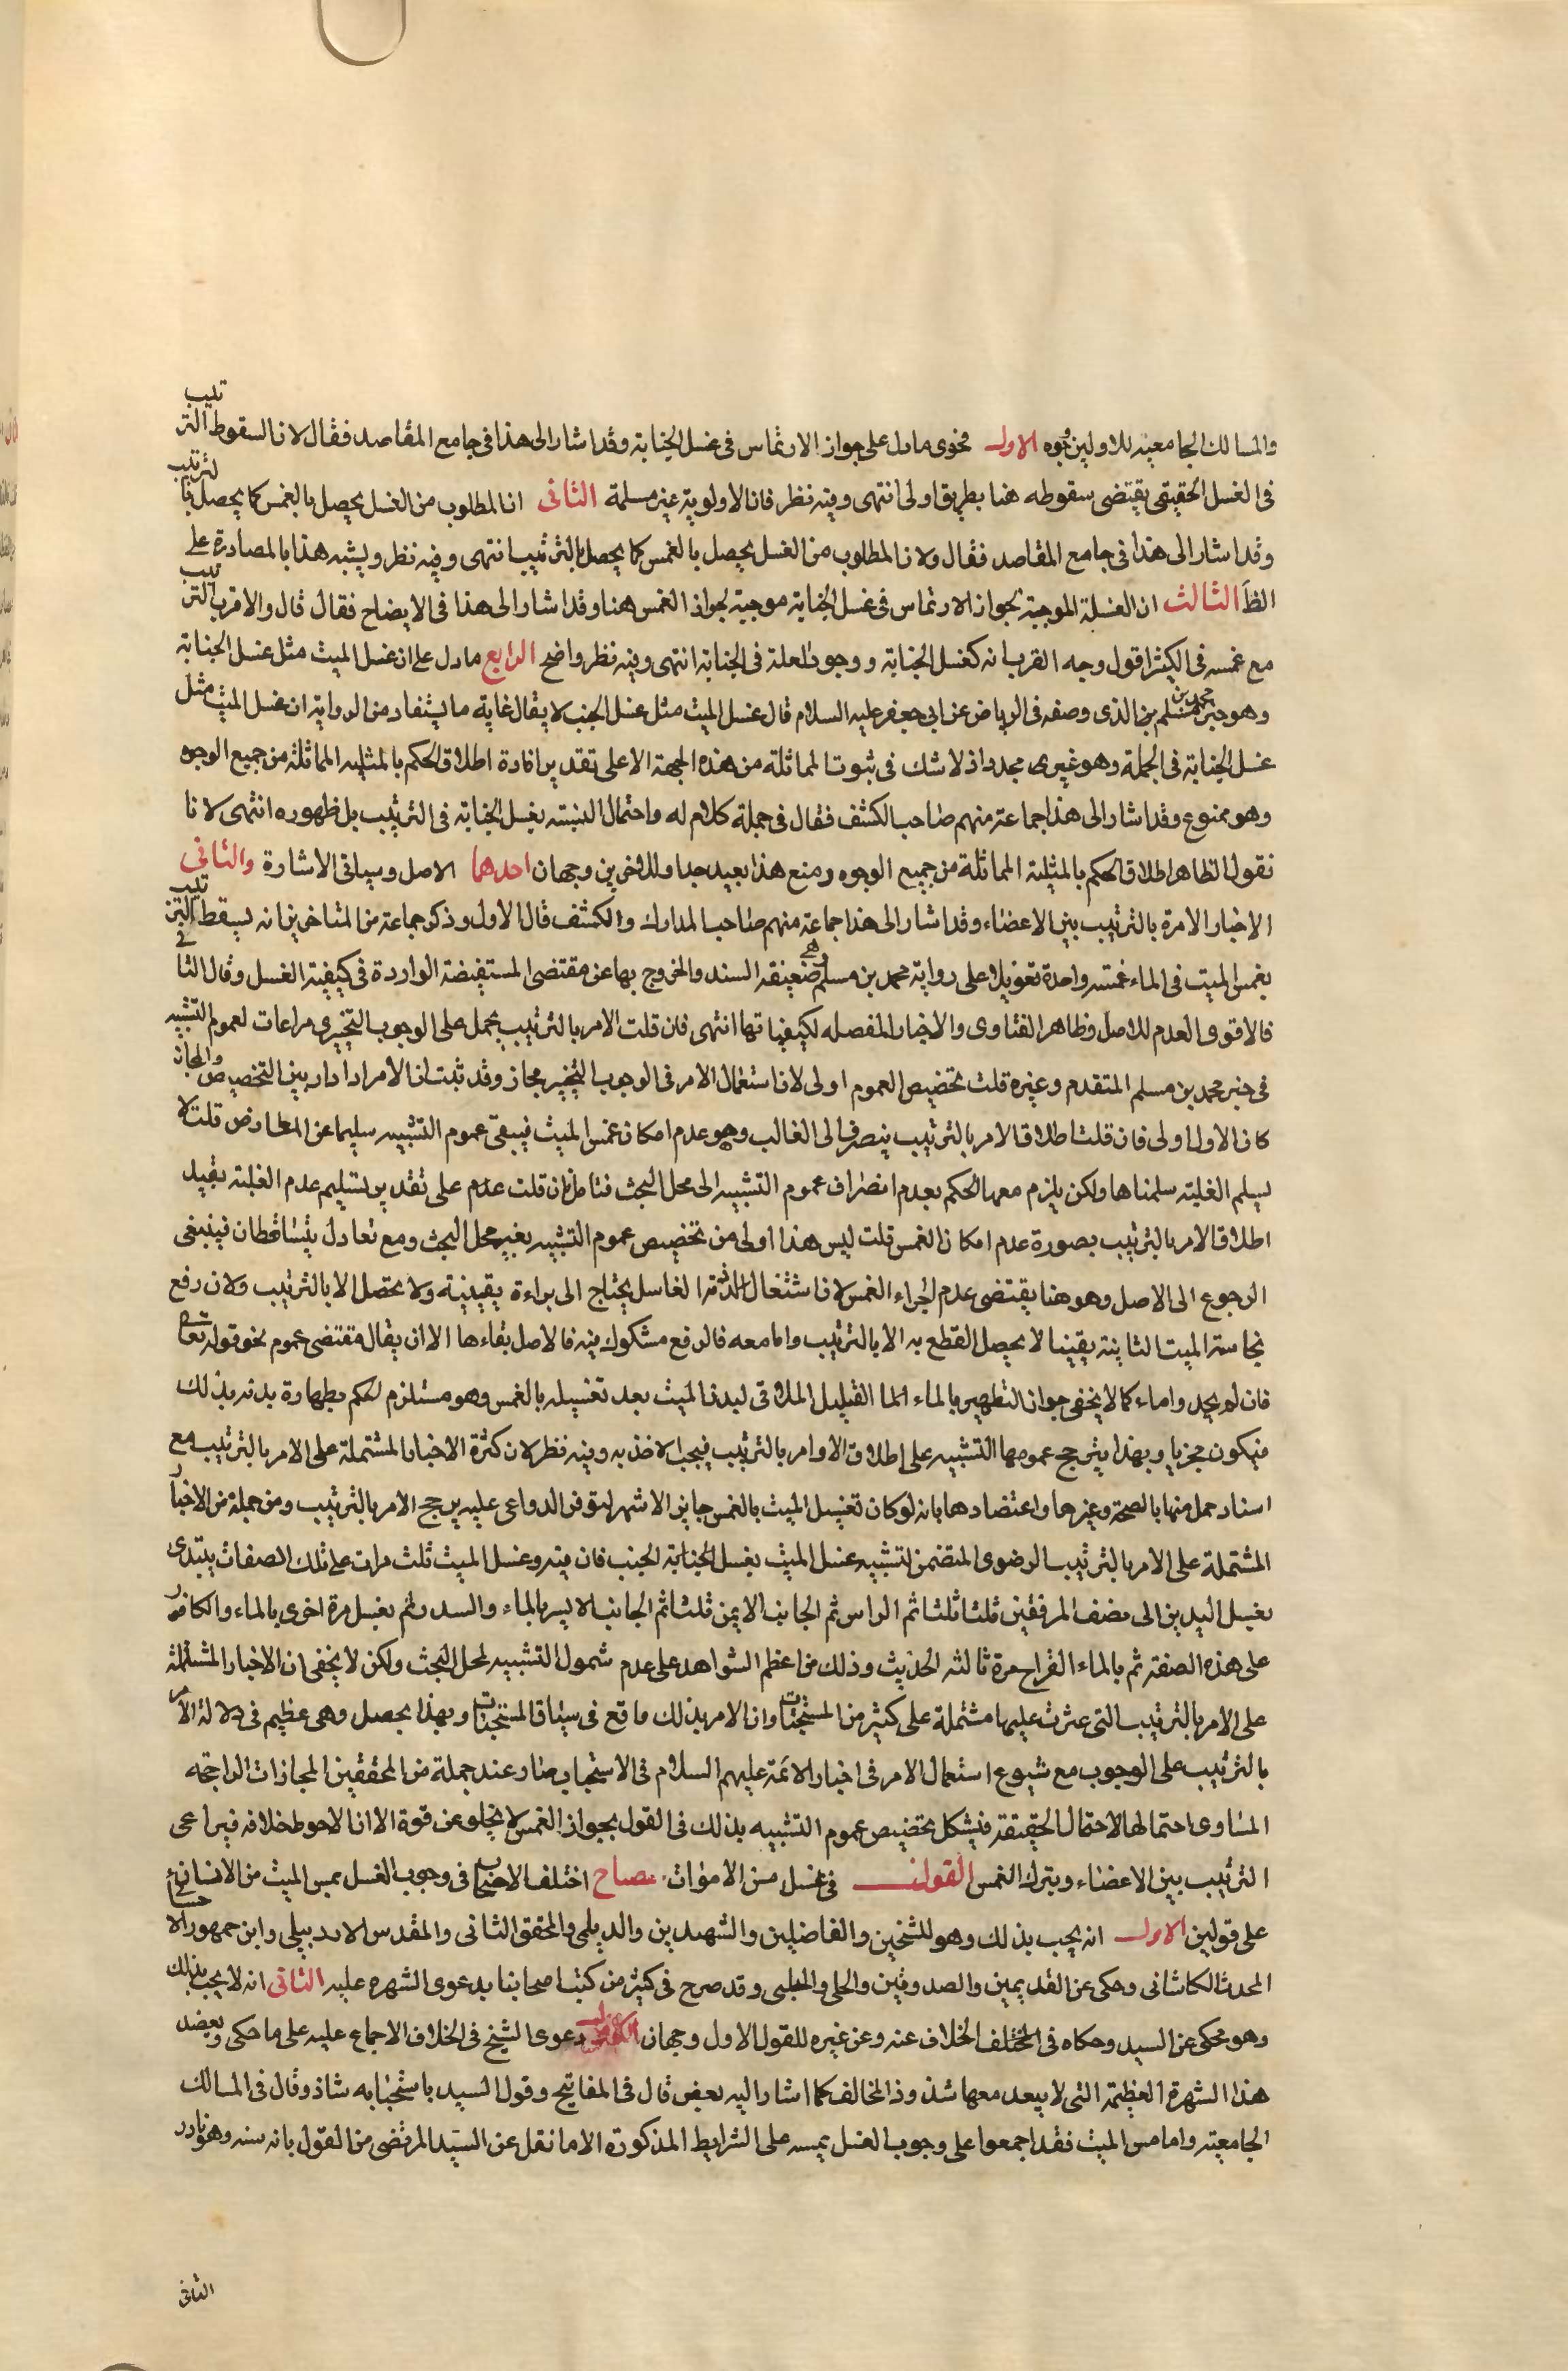 والمسالك الجامعية للاولين وجوه الاول فحوى مادل على جواز الارتماس فى غسل الجنابة وقد اشار الى هذا فى جامع المقاصد فقال لان السقوط الترتيب
فى الغسل الحقيقى يقتضى سقوطه هنا بطريق اولى انتهى وفيه نظر فان الاولوية غير مسلمة الثانى ان المطلوب من الغسل يحصل بالغمس كما يحصل بالترتيب
وقد اشار الى هذا فى جامع المقاصد فقال ولان المطلوب من الغسل يحصل بالغمس كما يحصل بالترتيب انتهى وفيه نظر ويشبه هذا بالمصادرة على
الظ الثالث ان العلة الموجبة لجواز الارتماس فى غسل الجنابة موجبة لجواز الغمس هنا وقد اشار الى هذا فى الايضاح فقال قال والاقرب الترتيب
مع غمسه فى الكثير اقول وجه القرب انه كغسل الجنابة ووجود العلة فى الجنابة انتهى وفيه نظر واضح الرابع مادل على ان غسل الميت مثل غسل الجنابة
وهو خبر محمد بن مسلم الذى وصفه فى الرياض عن ابى جعفر عليه السلام قال غسل الميت مثل غسل الجنب لا يقال غاية ما يستفاد من الرواية ان غسل الميت مثل
غسل الجنابة فى الجملة وهو غير مجد اذ لا شك فى ثبوت المماثلة من هذه الجهة الا على تقدير افادة اطلاق الحكم بالمثلية المماثلة من جميع الوجوه
وهو ممنوع وقد اشار الى هذا جماعة منهم صاحب الكشف فقال فى جملة كلام له واحتمال التشبيه بغسل الجنابة فى الترتيب بل ظهوره انتهى لانا
نقول الظاهر اطلاق الحكم بالمثلية المماثلة من جميع الوجوه ومنع هذا بعيد جدا وللاخرين وجهان احدهما الاصل وسياتى الاشارة والثانى
الاخبار الامرة بالترتيب بين الاعضاء وقد اشار الى هذا جماعة منهم صاحب المدارك والكشف قال الاول وذكر جماعة من المتاخرين انه يسقط الترتيب
بغمس الميت فى الماء غمسة واحدة تعويلا على رواية محمد بن مسلم وهى ضعيفة السند والخروج بها عن مقتضى المستفيضة الواردة فى كيفية الغسل وقال الثانى
فالاقوى العدم للاصل وظاهر الفتاوى والاخبار المفصله لكيفياتها انتهى فان قلت الامر بالترتيب يحمل على الوجوب التخييرى مراعات لعموم التشبيه
فى خبر محمد بن مسلم المتقدم وغيره قلت تخصيص العموم اولى لان استعمال الامر فى الوجوب التخيير مجاز وقد ثبت ان الامر اذا دار بين التخصيص والمجاز
كان الاول اولى فان قلت اطلاق الامر بالترتيب ينصرف الى الغالب وهو عدم امكان غمس الميت فيبقى عموم التشبيه سليما عن المعارض قلت لا
يسلم الغلبة سلمناها ولكن يلزم معها الحكم بعدم انصراف عموم التشبيه الى محل البحث فتامل فان قلت عدم على تقدير تسليم عدم الغلبة تقييد
اطلاق الامر بالترتيب بصورة عدم امكان الغمس قلت ليس هذا اولى من تخصيص عموم التشبيه بغير محل البحث ومع تعادل يتساقطان فينبغى
الرجوع الى الاصل وهو هنا يقتضى عدم اجزاء الغمس لان اشتغال الذمة الغاسل يحتاج الى براءة يقينية ولا يحصل الا بالترتيب ولان رفع
نجاسة الميت الثابتة يقينا لا يحصل القطع به الا بالترتيب وامامعه فالرفع مشكوك فيه فالاصل بقاءها الا ان يقال مقتضى عموم نحو قوله تعالى
فان لم يجدوا ماء كما لا يخفى جواز التطهير بالماء الما القليل الملاقى لبدن الميت بعد تغسيله بالغمس وهو مستلزم لحكم بطهارة بدنه بذلك
فيكون مجزيا وبهذا يترجح عموم التشبيه على اطلاق الاوامر بالترتيب فيجب الاخذ به وفيه نظر لان كثرة الاخبار المشتملة على الامر بالترتيب مع
اسناد جمل منها بالصحة وغيرها واعتضادها بانه لو كان تغسيل الميت بالغمس جايزا لاشهر لتوفر الدواعى عليه يرجح الامر بالترتيب ومن جملة من الاخبار
المشتملة على الامر بالترتيب الرضوى المتضمن لتشبيه غسل الميت بغسل الجنابة الجنب فان فيه وغسل الميت ثلث مرات على تلك الصفات يبتدى
بغسل اليدين الى نصف المرفقين ثلثا ثلثا ثم الراس ثم الجانب الايمن ثلثا ثم الجانب الايسر بالماء والسدر ثم يغسل مرة اخرى بالماء والكافور
على هذه الصفة ثم بالماء القراح مرة ثالثه الحديث وذلك من اعظم الشواهد على عدم شمول التشبيه لمحل البحث ولكن لا يخفى ان الاخبار المشتملة
على الامر بالترتيب التى عثرت عليها مشتملة على كثير من المستحبات وان الامر بذلك ماقع فى سياق المستحبات وبهذا يحصل وهى عظيم فى دلالة الامر
بالترتيب على الوجوب مع شيوع استعمال الامر فى اخبار الائمة عليهم السلام فى الاستحباب صار عند جملة من المحققين المجازات الراجحه
المساوى احتمالها لاحتمال الحقيقة فيشكل تخصيص عموم التشبيه بذلك فى القول بجواز الغمس لا يخلو عن قوة الا ان الاحوط خلافه فيراعى
الترتيب بين الاعضاء ويترك الغمس القول فى غسل مس الاموات مصباح اختلف الاصحاب فى وجوب الغسل بمس الميت من الانسان
على قولين الاول انه يجب بذلك وهو للشخين والفاضلين والشهيدين والديلمى والمحقق الثانى والمقدس الاردبيلى وابن جمهور الاحسائى
المحدث الكاشانى وحكى عن القديمين والصدوقين والحلى والحلبى وقد صرح فى كثير من كتب اصحابنا بدعوى الشهره عليه الثانى انه لا يجب بذلك
وهو محكى عن السيد وحكاه فى المختلف الخلاف عنه وعن غيره للقول الاول وجهان دعوى الشيخ فى الخلاف الاجماع عليه على ما حكى ويعضد
هذا الشهرة العظيمة التى لا يبعد معها شذوذ المخالف كما اشار اليه بعض قال فى المفاتيح وقول السيد باستحبابه شاذ وقال فى المسالك
الجامعية واما مس الميت فقد اجمعوا على وجوب الغسل بمسه على الشرايط المذكورة الا ما نقل عن السيد المرتضى من القول بانه سنه وهو نادر
الثانى